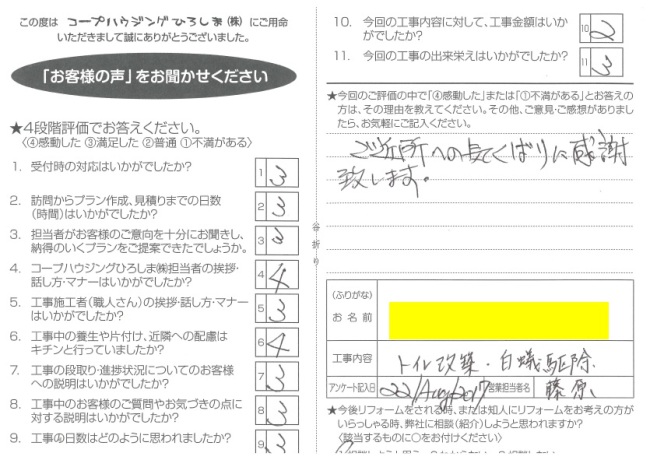 この度は コープハウジングひろしま(株) にご用命
いただきまして誠にありがとうございました。
「お客様の声」をお聞かせください
★4段階評価でお答えください。
〈④感動した ③満足した ②普通 ①不満がある〉
1. 受付時の対応はいかがでしたか?
1 3
2. 訪問からプラン作成、見積りまでの日数
(時間)はいかがでしたか?
2 3
3. 担当者がお客様のご意向を十分にお聞きし、
納得のいくプランをご提案できたでしょうか。
3 3
4. コープハウジングひろしま㈱担当者の挨拶・
話し方・マナーはいかがでしたか?
4 4
5. 工事施工者(職人さん)の挨拶・話し方・マナー
はいかがでしたか?
5 3
6. 工事中の養生や片付け、近隣への配慮は
キチンと行っていましたか?
6 4
7. 工事の段取り・進捗状況についてのお客様
への説明はいかがでしたか?
7 3
8. 工事中のお客様のご質問やお気づきの点に
対する説明はいかがでしたか?
8 3
9. 工事の日数はどのように思われましたか?
9 3
谷折り
10. 今回の工事内容に対して、工事金額はいか
がでしたか?
10 2
11. 今回の工事の出来栄えはいかがでしたか?
11 3
★今回のご評価の中で「④感動した」または「①不満がある」とお答えの
方は、その理由を教えてください。その他、ご意見・ご感想がありまし
たら、お気軽にご記入ください。
ご近所への気くばりに感謝
致します。
(ふりがな)
お名前
工事内容
トイレ改築・白蟻駆除
アンケート記入日 22/Aug/2017 営業担当者名 藤原
★今後リフォームをされる時、または知人にリフォームをお考えの方が
いらっしゃる時、弊社に相談(紹介)しようと思われますか?
〈該当するものに○をお付けください〉